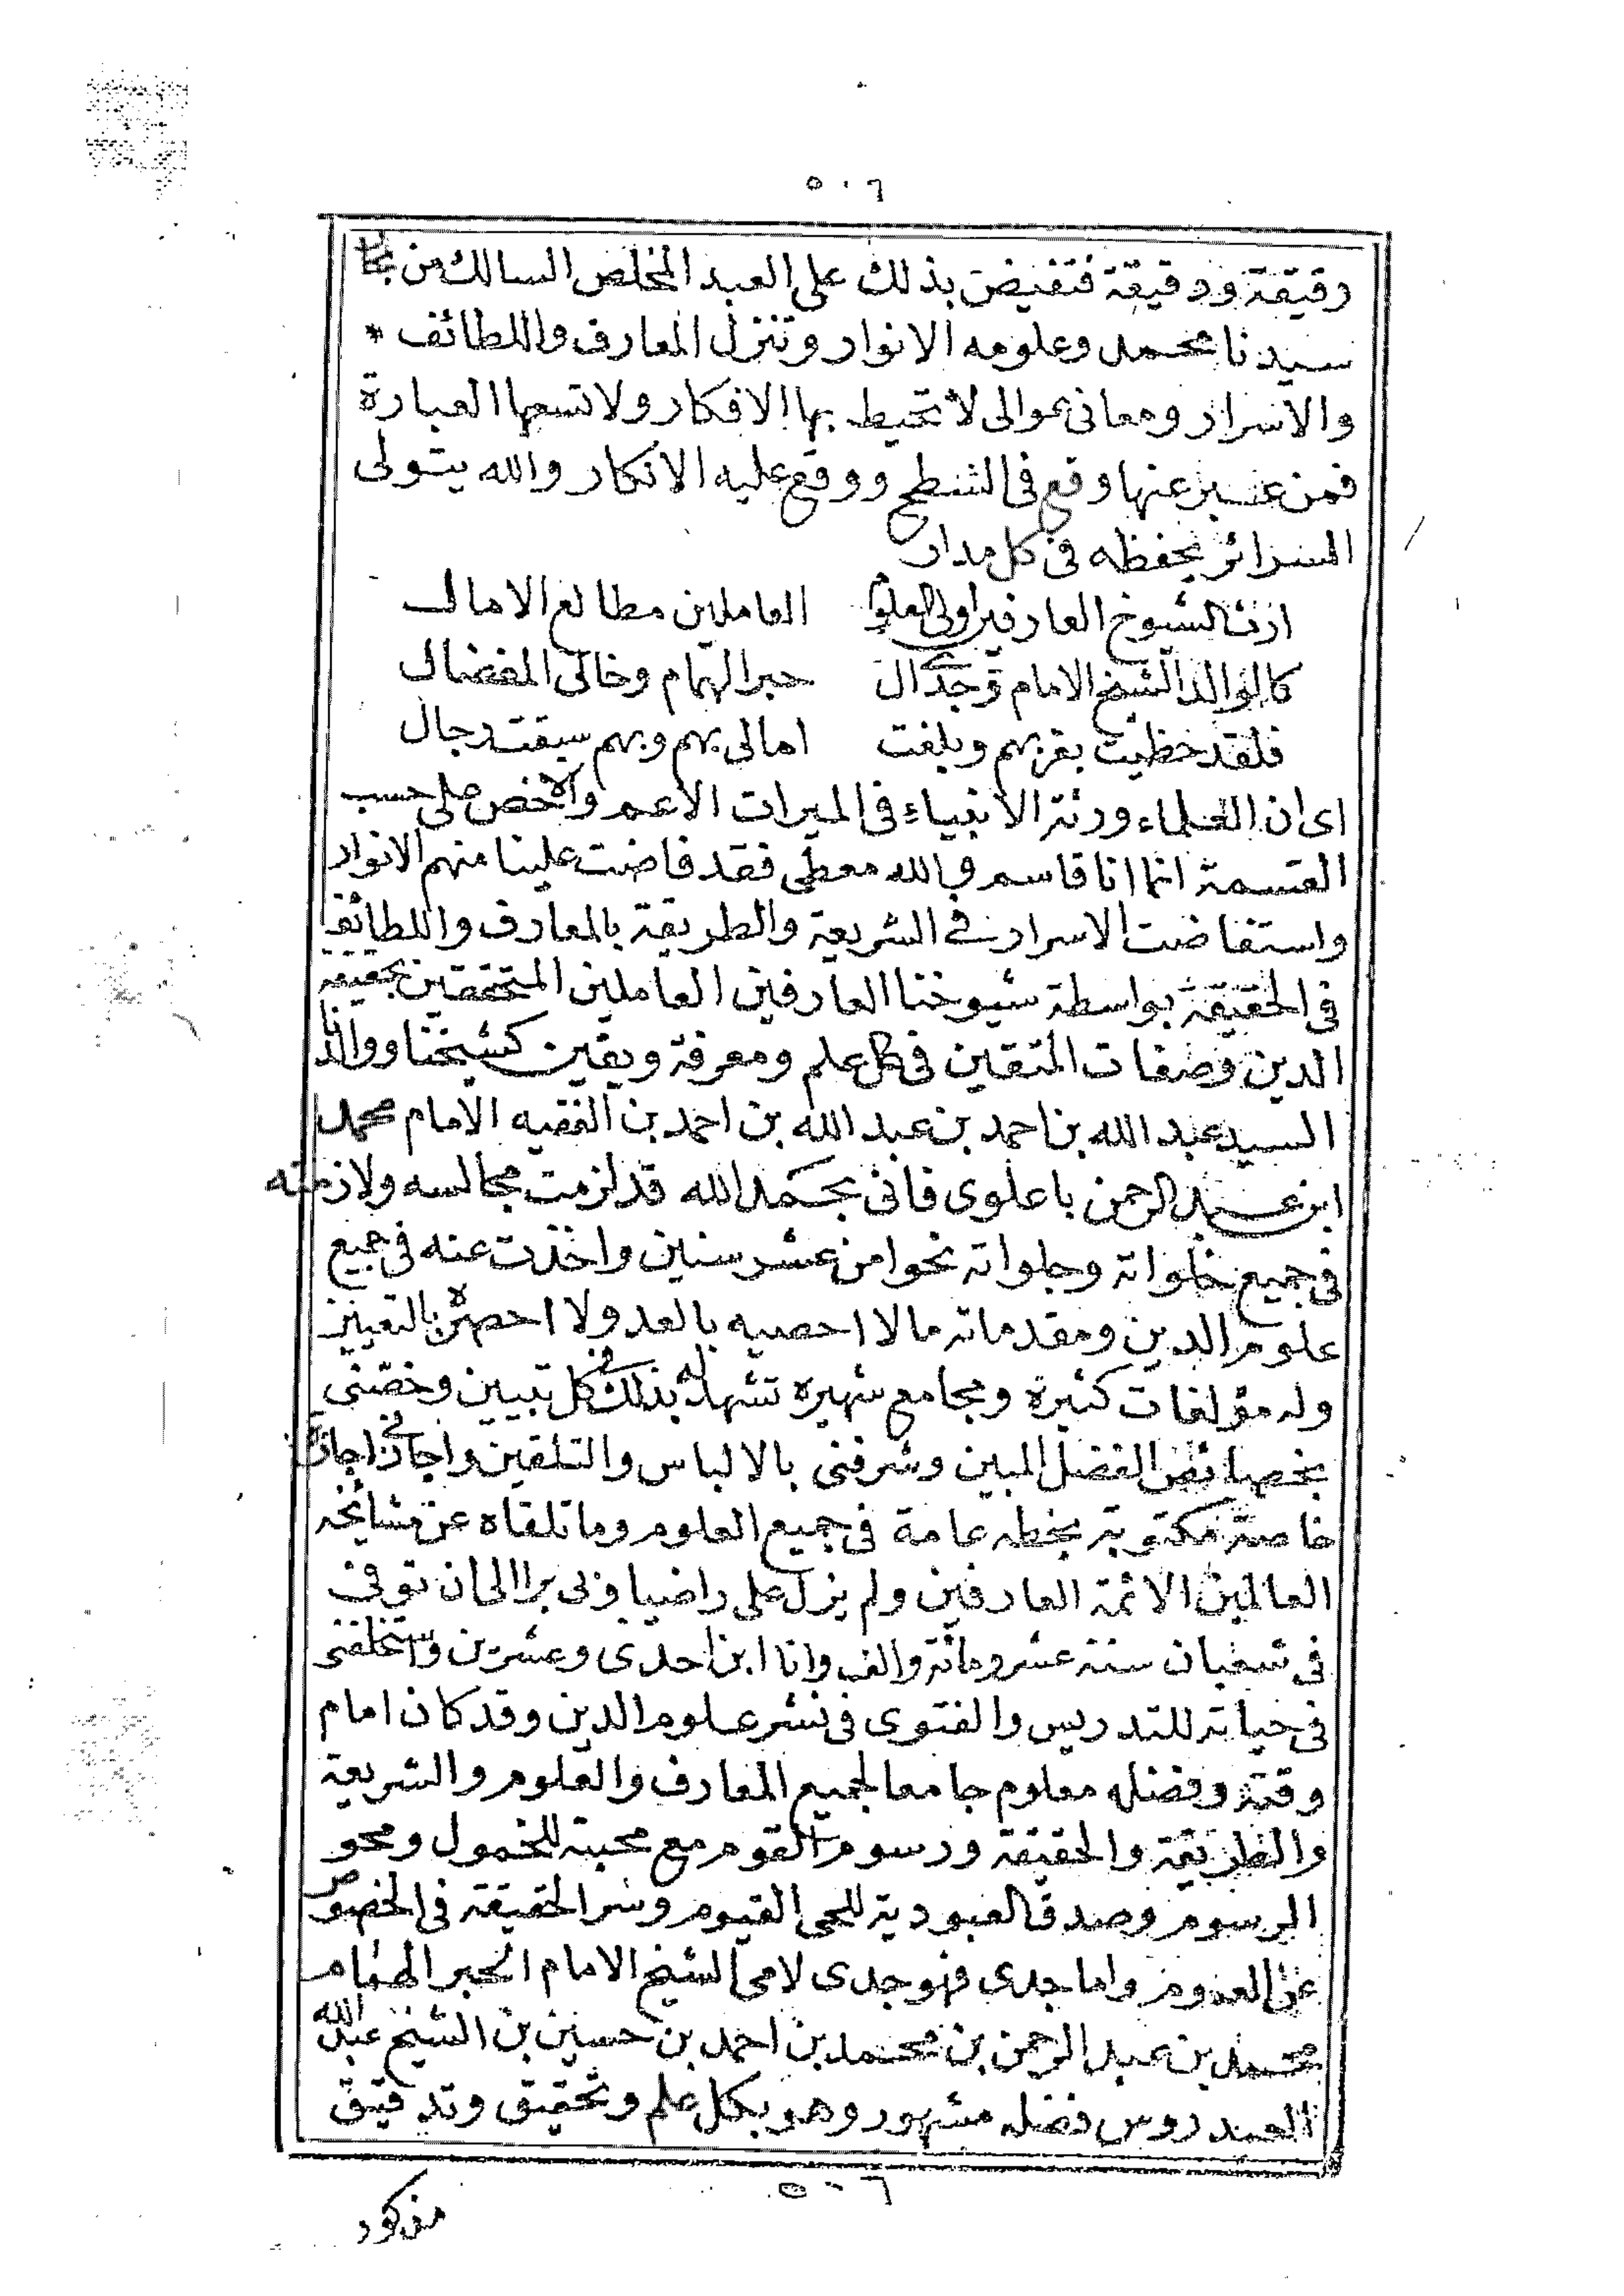 ٥٠٦
رقيقة ودقيقة فتفيض بذلك على العبد المخلص السالك من
سيدنا محمد وعلومه الانوار وتنزل المعارف واللطائف *
والاسرار ومعانى عوالى لا تحيط بها الافكار ولا تسعها العبارة
فمن عبر عنها وقع فى الشطح ووقع عليه الانكار والله يتولى
السرائر بحفظه فى كل مدار
الشيوخ العارفين اولى العلوم العاملين مطالع الامال
كالوالد الشيخ الامام وجد ال حبر الهمام وخالى المفضال
فلقد حظيت بقربهم وبلغت امالى بهم وبهم سبقت رجال
اى ان العلماء ورثة الانبياء فى الميراث الاعم والاخص على حسب
القسمة انما انا قاسم والله معطى فقد فاضت علينا منهم الانوار
واستفاضت الاسرار فى الشريعة والطريقة بالمعارف واللطائف
فى الحقيقة بواسطة شيوخنا العارفين العاملين المتحققين بحقيقة
الدين وصفات المتقين فى كل علم ومعرفة ويقين كشيخنا ووالدنا
السيد عبد الله بن احمد بن عبد الله بن احمد بن الفقيه الامام محمد
ابن عبد الرحمن باعلوى فانى بحمد الله قد لزمت مجالسه ولازمته
فى جميع خلواته وجلواته نحوا من عشر سنين واخذت عنه فى جميع
علوم الدين ومقدماته مالا احصيه بالعد ولا احصره بالتعيين
وله مؤلفات كثيرة ومجامع شهيره تشهد له بذلك فى كل تبيين وخصنى
بخصائص الفضل المبين وشرفنى بالالباس والتلقين واجازنى اجازة
خاصة مكتوبة بخطه عامة فى جميع العلوم وما تلقاه عن مشائخه
العالمين الائمة العارفين ولم يزل على راضيا وبى برا الى ان توفى
فى شعبان سنة عشر ومائة والف وانا ابن احدى وعشرين واستخلفنى
فى حياته للتدريس والفتوى فى نشر علوم الدين وقد كان امام
وقته وفضله معلوم جامعا لجميع المعارف والعلوم والشريعة
والطريقة والحقيقة ورسوم القوم مع محبة للخمول ومحو
الرسوم وصدق العبودية للحى القيوم وسر الحقيقة فى الخصوص
عن العموم واما جدى فهو جدى لامى الشيخ الامام الحبر الهمام
محمد بن عبد الرحمن بن محمد بن احمد بن حسين بن الشيخ عبد الله
العيدروس فضله مشهور وهو بكل علم وتحقيق وتدقيق
٥٠٦
مذكور